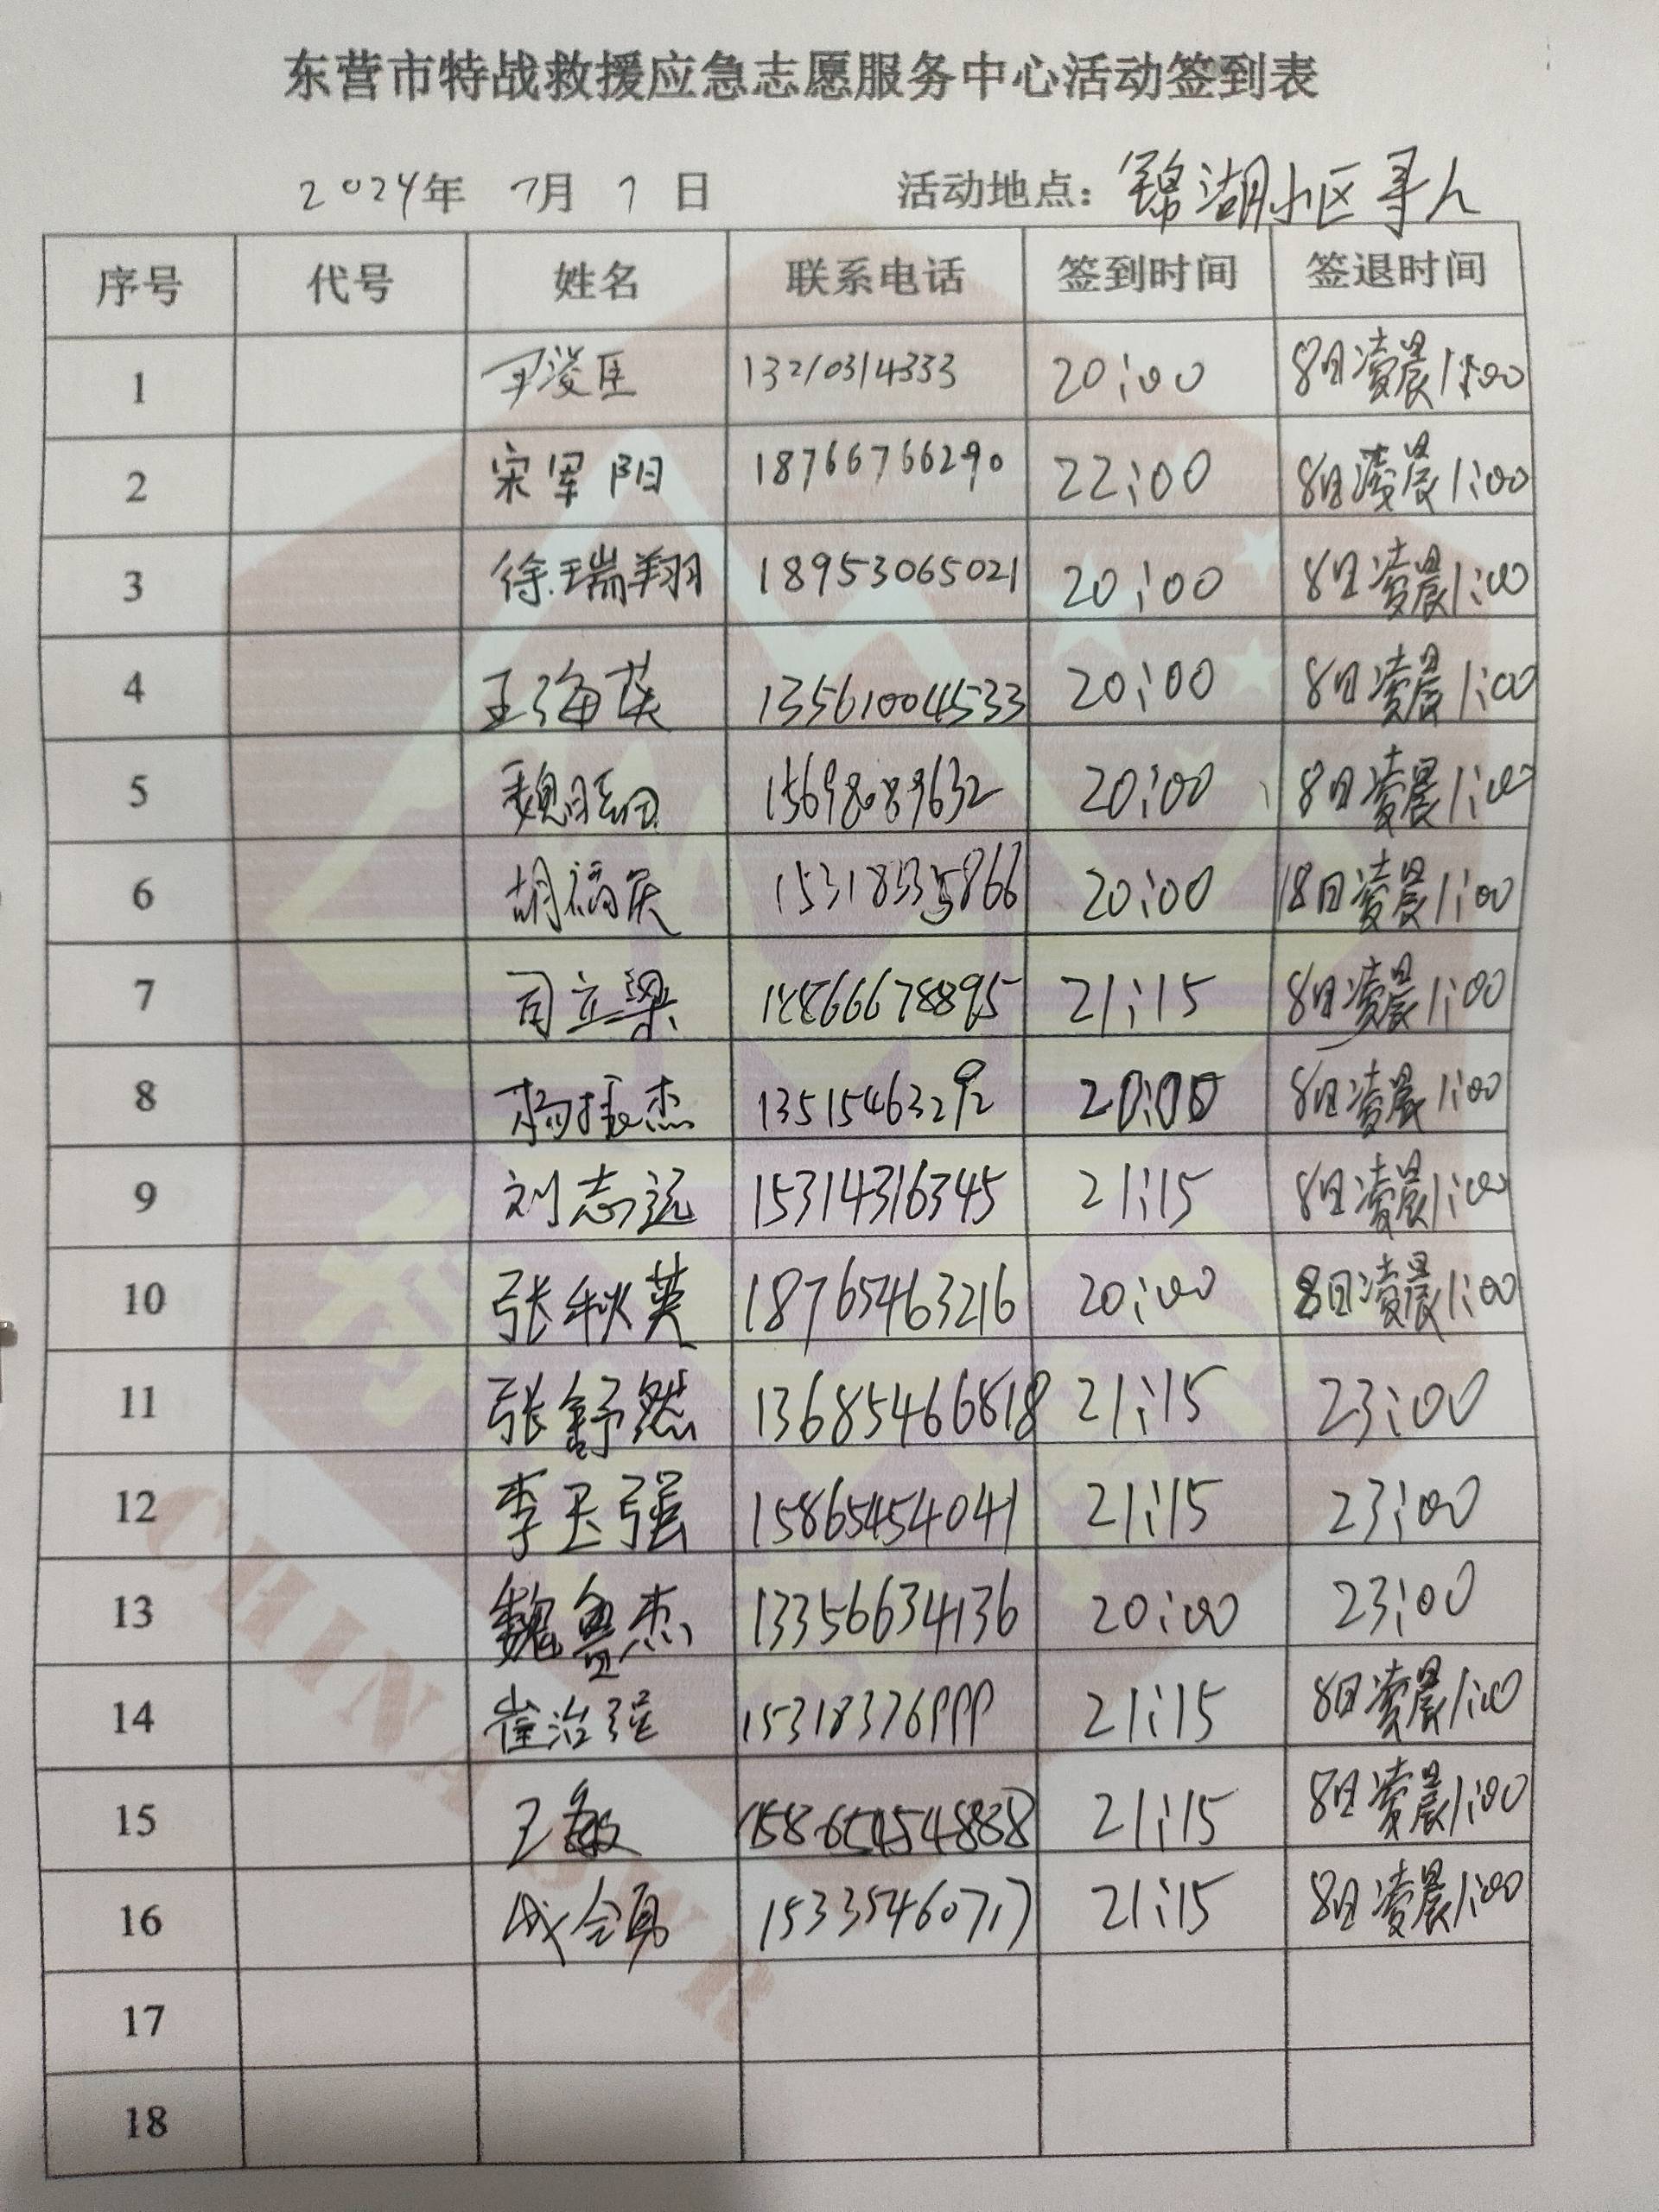 东营市特战救援应急志愿服务中心活动签到表
2024年 7月 7日 活动地点：锦湖小区寻人
序号 代号 姓名 联系电话 签到时间 签退时间
1 13210314333 20:00 8日凌晨1:00
2 宋军阳 18766766290 22:00 8日凌晨1:00
3 徐瑞翔 18953065021 20:00 8日凌晨1:00
4 王海英 13561004533 20:00 8日凌晨1:00
5 15698089632 20:00 8日凌晨1:00
6 胡福庆 20:00 8日凌晨1:00
7 司立梁 21:15 8日凌晨1:00
8 杨振杰 13515463292 20:00 8日凌晨1:00
9 刘志远 15314316345 21:15 8日凌晨1:00
10 张秋英 18765463216 20:00 8日凌晨1:00
11 张舒然 13685466818 21:15 23:00
12 李玉强 15865454041 21:15 23:00
13 魏鲁杰 13356634136 20:00 23:00
14 崔治强 15318376999 21:15 8日凌晨1:00
15 王敏 21:15 8日凌晨1:00
16 15335460717 21:15 8日凌晨1:00
17
18